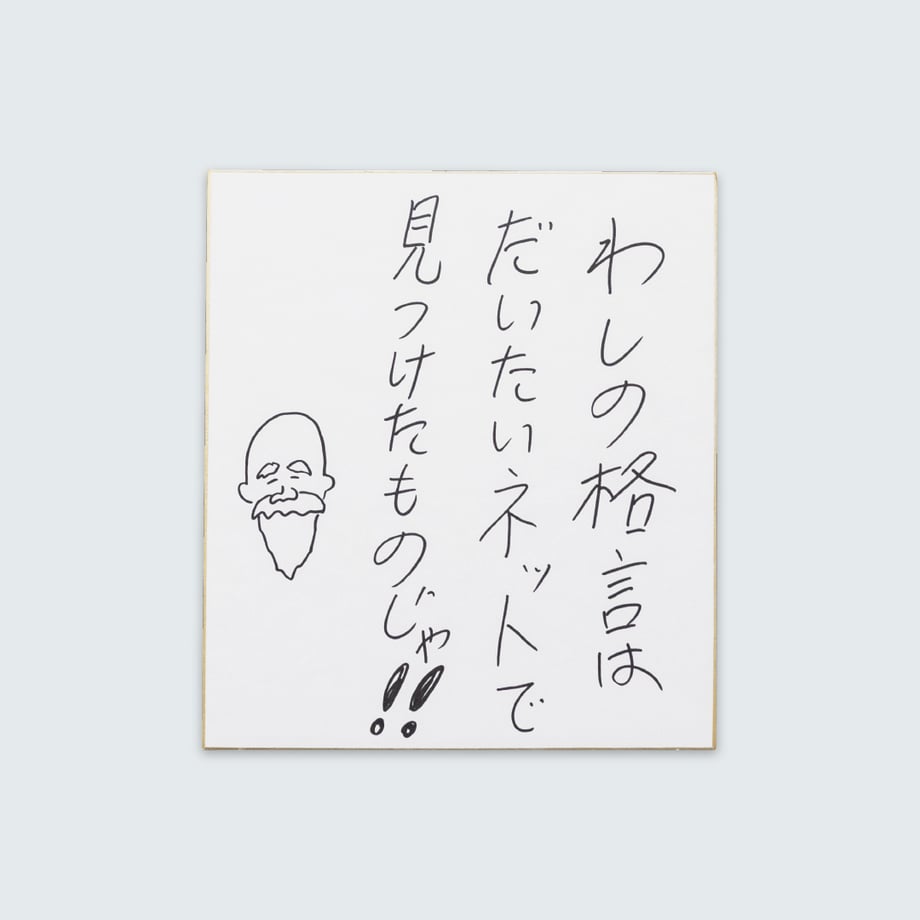 わしの格言は
だいたいネットで
見つけたものじゃ!!